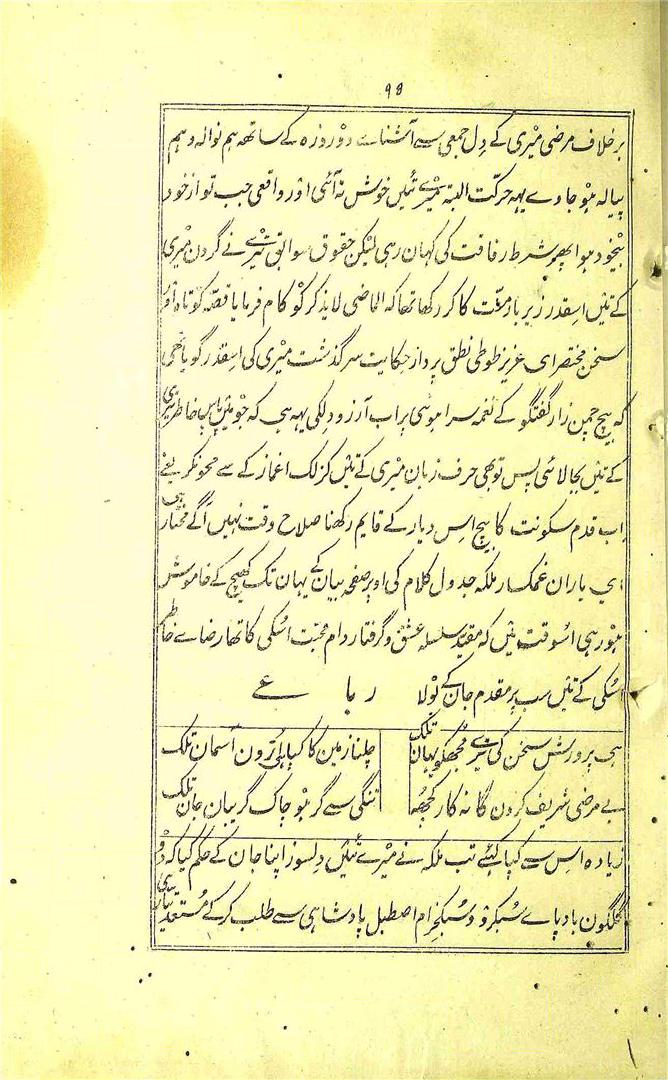 ۹۴
برخلاف مرضی میری کے دل جمعی سے آشناے دو روزہ کے ساتھ ہم نوالہ و ہم
پیالہ ہو جاوے یہہ حرکت البتہ میرے تئیں خوش نہ آئی اور واقعی جب تو از خود
بیخود ہوا پھر شرط رفاقت کی کہان رہی لیکن حقوق سوابق تیرے نے گردن میری
کے تئیں اسقدر زیر بار منّت کا کر رکھا تھا کہ الماضی لایذکر کو کام فرمایا قصّہ کوتاہ اور
سخن مختصر ای عزیز طوطی نطق پرداز حکایت سرگذشت میری کی اسقدر گویا تھی
کہ بیچ چمن زار گفتگو کے نغمہ سرا ہوئی پر اب آرزو دلکی یہہ ہی کہ جو میں پاس خاطر تیری
کے تئیں بجا لائی پس تو بھی حرف زبان میری کے تئیں کزلک اغماز کے سے محو نکر یعنے
اب قدم سکونت کا بیچ اس دیار کے قایم رکھنا صلاح وقت نہیں آگے مختار ہی
ای یاران غمگسار ملکہ جدول کلام کی اوپر صفحہ بیان کے یہان تک کھینچ کے خاموش
ہو رہی اسوقت میں کہ مقید سلسلہ عشق و گرفتار دام محبت اسکی کا تھا رضاے خاطر
اسکی کے تئیں سب پر مقدم جان کے بولا رباعے
ہی پرورش سخن کی تیرے مجھکو یہان تلک چلنا زمین کا کیا ہی اڑون آسمان تلک
بے مرضی شریف کرون گا نہ کار کچھہ تنگی سے گر ہو چاک گریبان جان تلک
زیادہ اس سے کیا کہئے تب ملکہ نے میرے تئیں دلسوز اپنا جان کے حکم کیا کہ دو
گلگون بادپاے سبکرو و سبکخرام اصطبل پادشاہی سے طلب کر کے مستعد تیاری